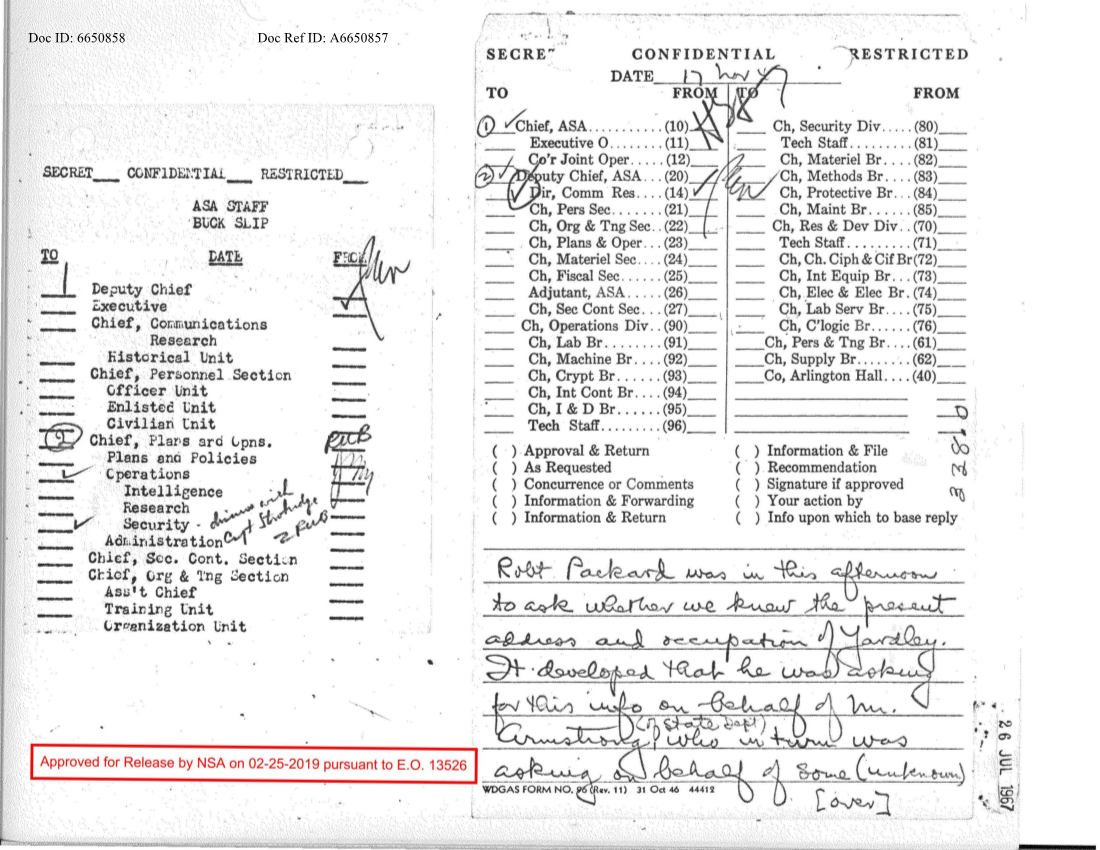 Doc ID: 6650858
Doc Ref ID: A6650857
SECRET___ CONFIDENTIAL___ RESTRICTED___
ASA STAFF
BUCK SLIP
TO DATE FROM
Deputy Chief
Executive
Chief, Communications
Research
Historical Unit
Chief, Personnel Section
Officer Unit
Enlisted Unit
Civilian Unit
2 Chief, Plans and Opns.
Plans and Policies
Operations
Intelligence
Research
Security - with
Administration Capt
Chief, Sec. Cont. Section
Chief, Org & Tng Section
Ass't Chief
Training Unit
Organization Unit
Approved for Release by NSA on 02-25-2019 pursuant to E.O. 13526
SECRET CONFIDENTIAL RESTRICTED
DATE 17 Nov
TO FROM TO FROM
1 Chief, ASA..........(10)
Executive O.......(11)
Co'r Joint Oper.....(12)
2 Deputy Chief, ASA...(20)
Dir, Comm Res....(14)
Ch, Pers Sec.......(21)
Ch, Org & Tng Sec..(22)
Ch, Plans & Oper...(23)
Ch, Materiel Sec....(24)
Ch, Fiscal Sec......(25)
Adjutant, ASA.....(26)
Ch, Sec Cont Sec...(27)
Ch, Operations Div..(90)
Ch, Lab Br........(91)
Ch, Machine Br....(92)
Ch, Crypt Br......(93)
Ch, Int Cont Br....(94)
Ch, I & D Br......(95)
Tech Staff........(96)
Ch, Security Div....(80)
Tech Staff........(81)
Ch, Materiel Br....(82)
Ch, Methods Br....(83)
Ch, Protective Br...(84)
Ch, Maint Br......(85)
Ch, Res & Dev Div..(70)
Tech Staff.........(71)
Ch, Ch. Ciph & Cif Br(72)
Ch, Int Equip Br...(73)
Ch, Elec & Elec Br.(74)
Ch, Lab Serv Br....(75)
Ch, C'logic Br.....(76)
Ch, Pers & Tng Br....(61)
Ch, Supply Br.......(62)
Co, Arlington Hall....(40)
( ) Approval & Return
( ) As Requested
( ) Concurrence or Comments
( ) Information & Forwarding
( ) Information & Return
( ) Information & File
( ) Recommendation
( ) Signature if approved
( ) Your action by
( ) Info upon which to base reply
Robt Packard was in this afternoon
to ask whether we knew the present
address and occupation of Yardley.
It developed that he was asking
for this info on behalf of Mr.
Armstrong (of State Dept), who in turn was
asking on behalf of some (unknown)
[over]
WDGAS FORM NO. 96 (Rev. 11) 31 Oct 46 44412
26 JUL 1967